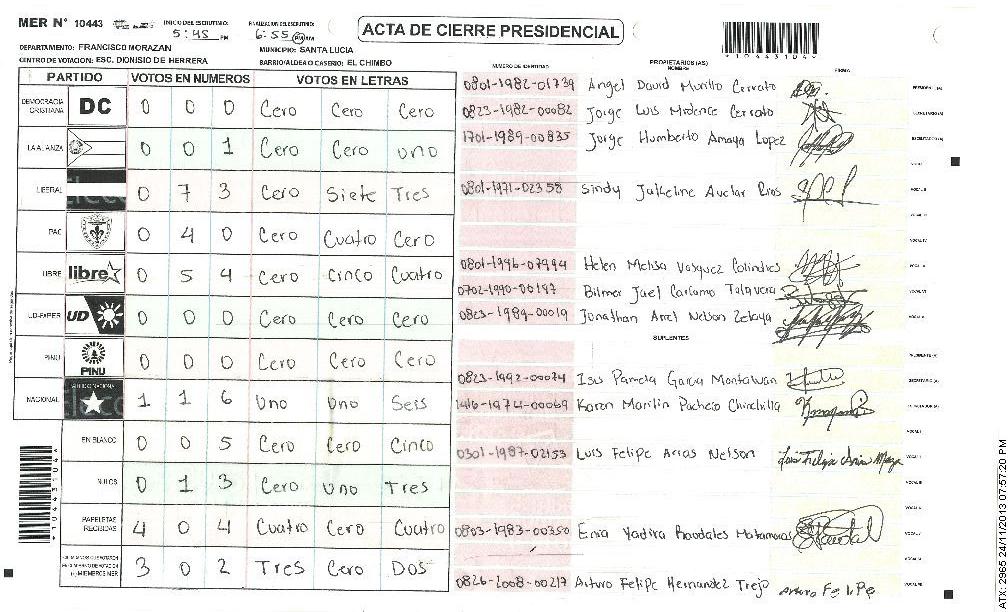 MER N° 10443
INICIO DEL ESCRUTINIO:
5:45 PM
FINALIZACION DEL ESCRUTINIO:
6:55 PM
ACTA DE CIERRE PRESIDENCIAL
*10443104*
DEPARTAMENTO: FRANCISCO MORAZAN
MUNICIPIO: SANTA LUCIA
CENTRO DE VOTACION: ESC. DIONISIO DE HERRERA
BARRIO/ALDEA O CASERIO: EL CHIMBO
PARTIDO VOTOS EN NUMEROS VOTOS EN LETRAS
DEMOCRACIA CRISTIANA DC 0 0 0 Cero Cero Cero
LA ALIANZA 0 0 1 Cero Cero uno
LIBERAL 0 7 3 Cero Siete Tres
PAC 0 4 0 Cero Cuatro Cero
LIBRE libre 0 5 4 Cero Cinco Cuatro
UD-FAPER UD 0 0 0 Cero Cero Cero
PINU PINU 0 0 0 Cero Cero Cero
NACIONAL 1 1 6 Uno Uno Seis
EN BLANCO 0 0 5 Cero Cero Cinco
NULOS 0 1 3 Cero Uno Tres
PAPELETAS RECIBIDAS 4 0 4 Cuatro Cero Cuatro
3 0 2 Tres Cero Dos
*10443104*
NUMERO DE IDENTIDAD
PROPIETARIOS (AS)
NOMBRE
FIRMA
0801-1982-01739 Angel David Murillo Cerrato
0823-1982-00082 Jorge Luis Cerrato
1701-1989-00835 Jorge Humberto Amaya Lopez
0801-1971-02358 Sindy Julkeline Avelar Rios
0801-1996-07994 Helen Melisa Vasquez Colindres
0702-1990-00197 Bilmer Jael Carcamo Talavera
0823-1989-00019 Jonathan Ariel Nelson Zelaya
SUPLENTES
0823-1992-00074 Isis Pamela Garcia Montalvan
1416-1974-00069 Karen Marilin Pacheco Chinchilla
0301-1987-02153 Luis Felipe Arias Nelson
0803-1983-00350 Enia Yadira Raudales Matamoros
0826-2008-00217 Arturo Felipe Hernandez Trejo Arturo Felipe
ATX: 2965 24/11/2013 07:57:20 PM